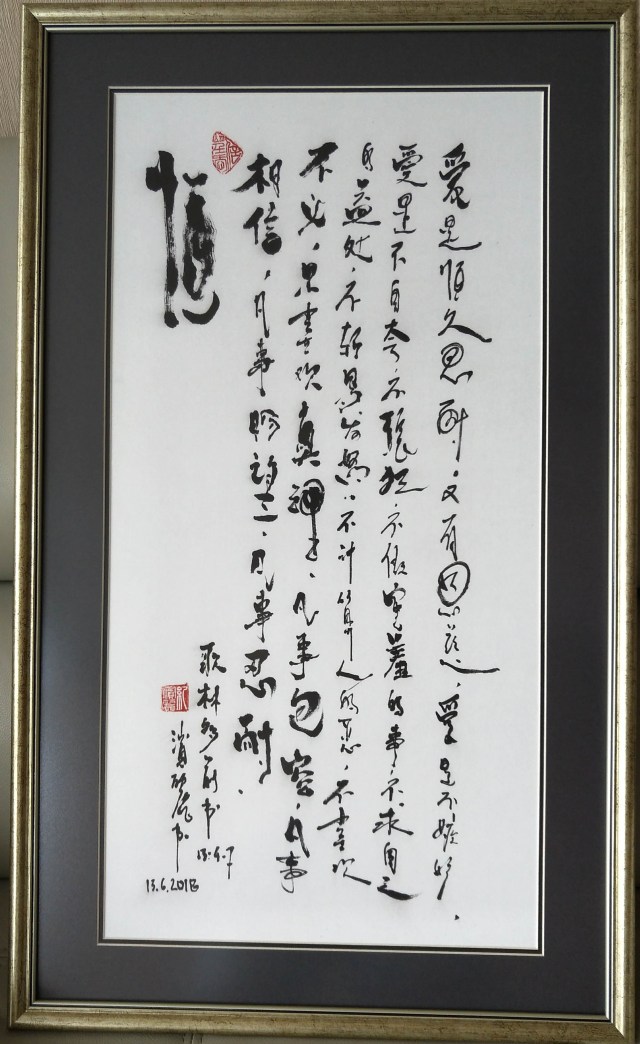 愛是恆久忍耐，又有恩慈，愛是不嫉妒，
愛是不自夸，不張狂，不做害羞的事，不求自己
的益处，不輕易发怒，不計算人的惡，不喜欢
不义，只喜欢真理，凡事包容，凡事
相信，凡事盼望，凡事忍耐。
歌林多前书
13.6.2018